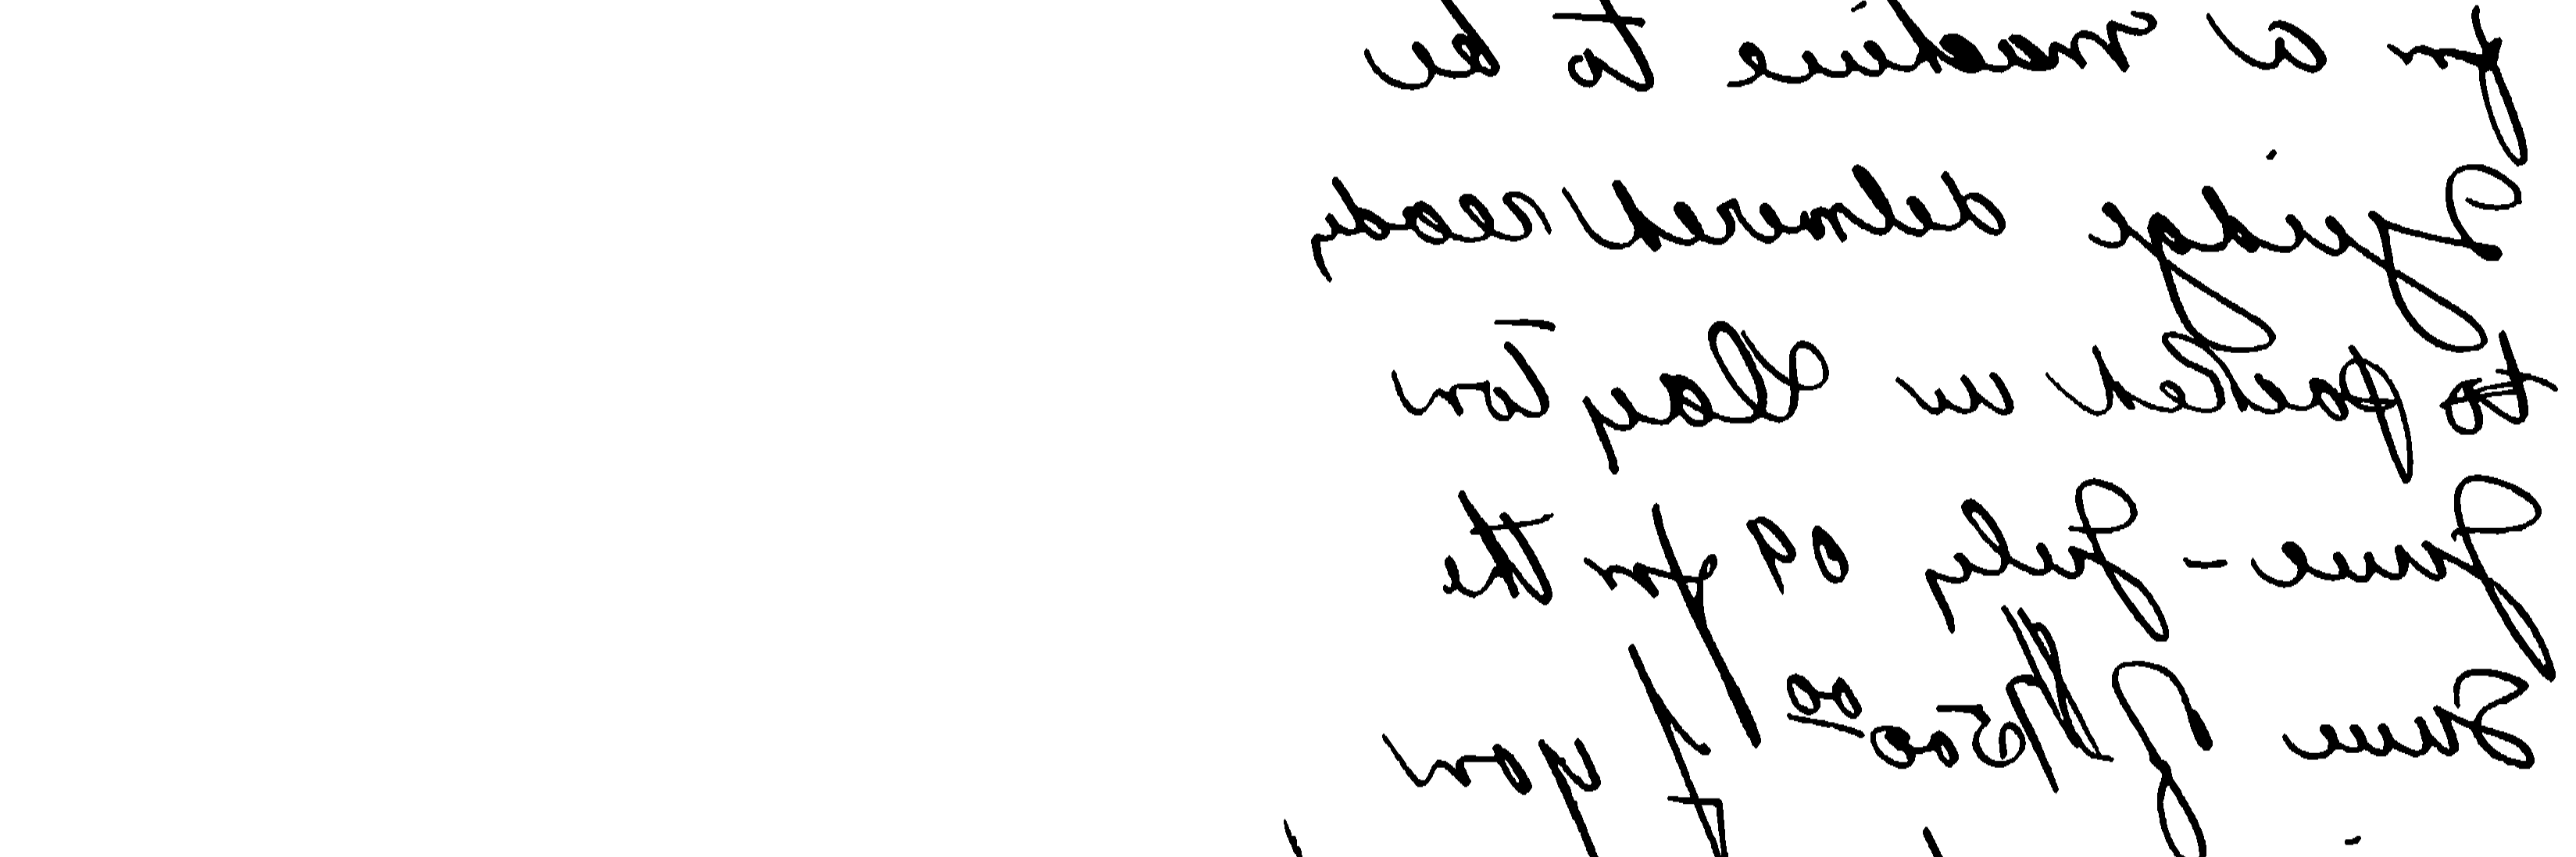 for a machine to be
delivered ready
to pocket in Clayton
June - July 09 for the
Sum of $500 00 if you